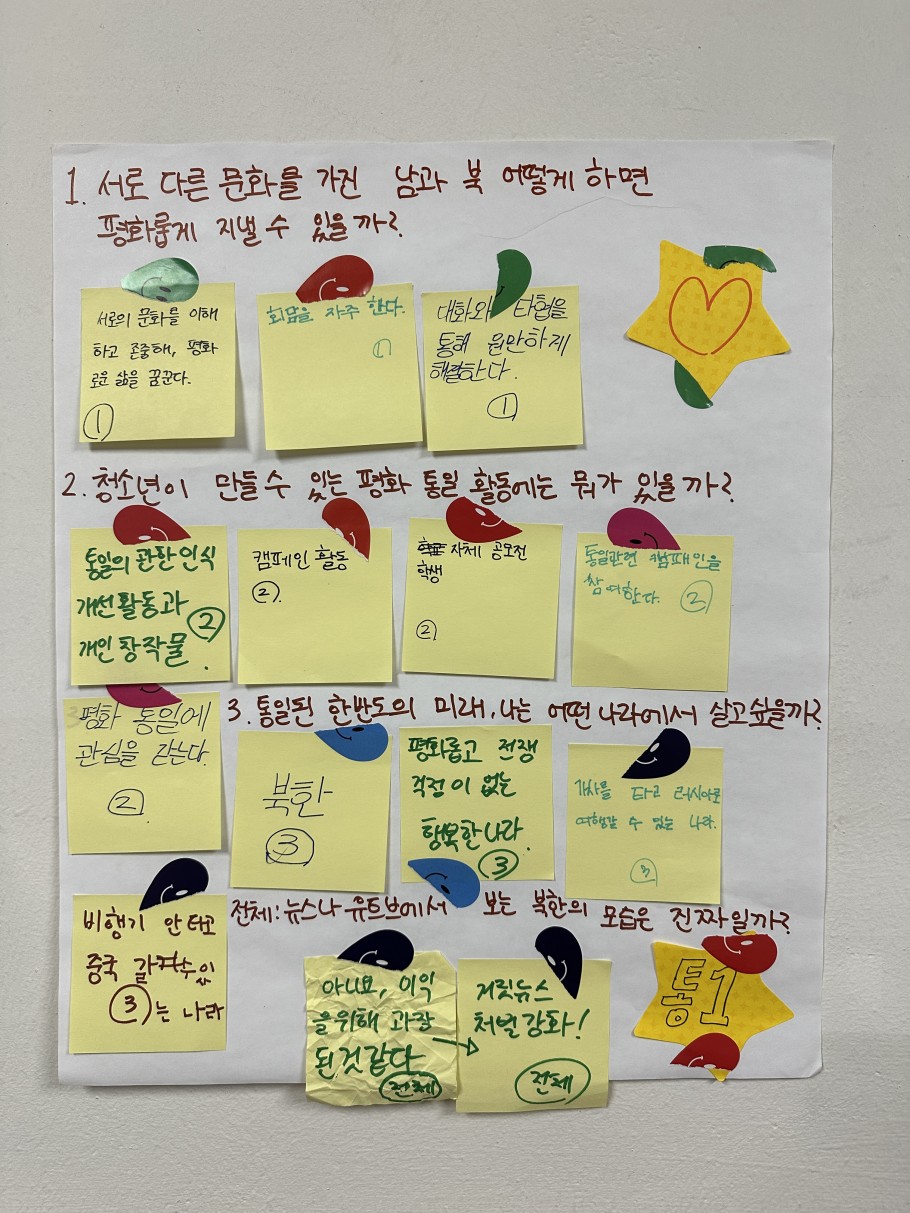 1. 서로 다른 문화를 가진 남과 북 어떻게 하면
평화롭게 지낼 수 있을까?
서로의 문화를 이해
하고 존중해, 평화
로운 삶을 꿈꾼다.
①
회담을 자주 한다.
①
대화와 타협을
통해 원만하게
해결한다.
①
2. 청소년이 만들 수 있는 평화 통일 활동에는 뭐가 있을까?
통일의 관한 인식
개선활동과
개인 창작물.
②
캠페인 활동
②.
자체 공모전
학생
②
통일관련 캠패인을
참여한다. ②
평화 통일에
관심을 갖는다.
②
3. 통일된 한반도의 미래, 나는 어떤 나라에서 살고싶을까?
북한
③
평화롭고 전쟁
걱정이 없는
행복한나라.
③
기차를 타고 러시아로
여행갈 수 있는 나라.
③
비행기 안타고
중국 갈 수 있
③는 나라
전체: 뉴스나 유트브에서 보는 북한의 모습은 진짜일까?
아니요, 이익
을위해 과장
된것같다
전체
거짓뉴스
처벌강화!
전체
통1